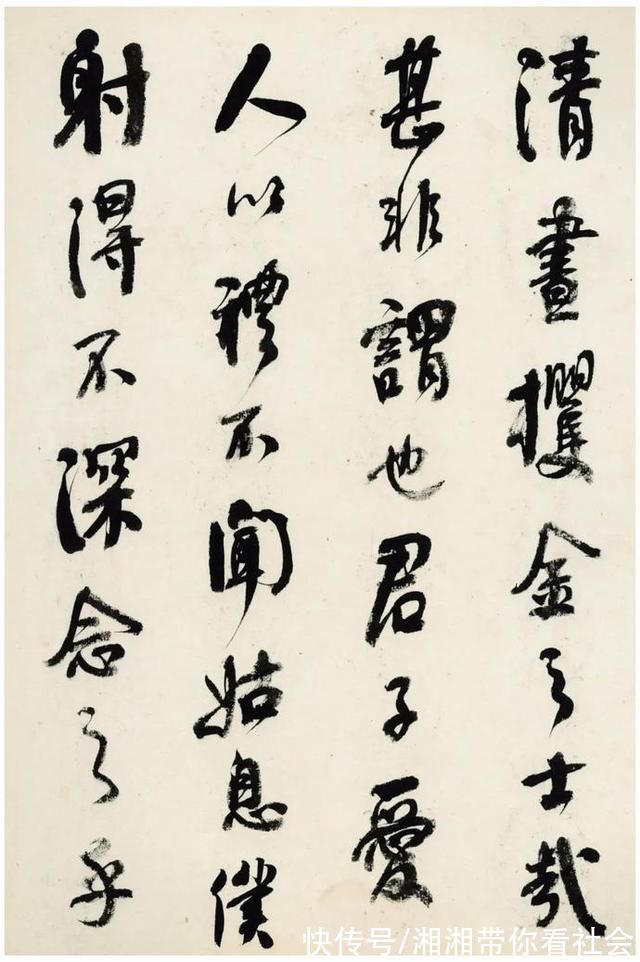 清晝攫金之士哉
甚非謂也君子愛
人以禮不聞姑息僕
射得不深念之乎
快传号/湘湘带你看社会